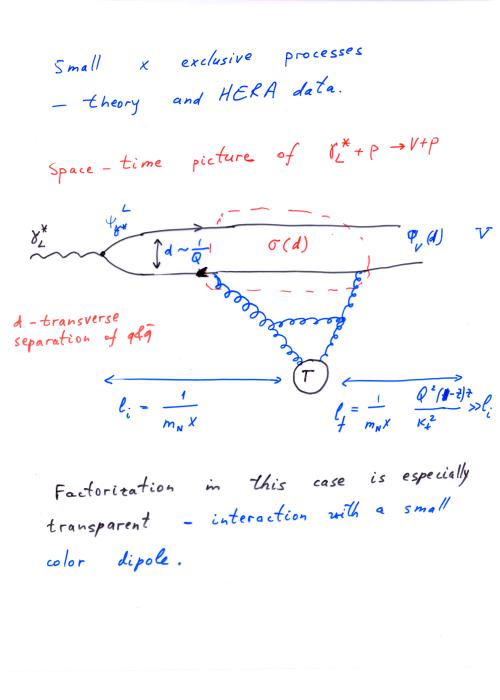 Small x exclusive processes
– theory and HERA data.
Space-time picture of γ*_L + p → V+p
γ*_L
ψ^L_γ*
d ~ 1/Q
σ(d)
φ_V(d) V
d - transverse
separation of q&q̄
T
l_i = 1/(m_N x)
l_f = 1/(m_N x) Q²(1-z)z/k_t² >> l_i
Factorization in this case is especially
transparent – interaction with a small
color dipole.